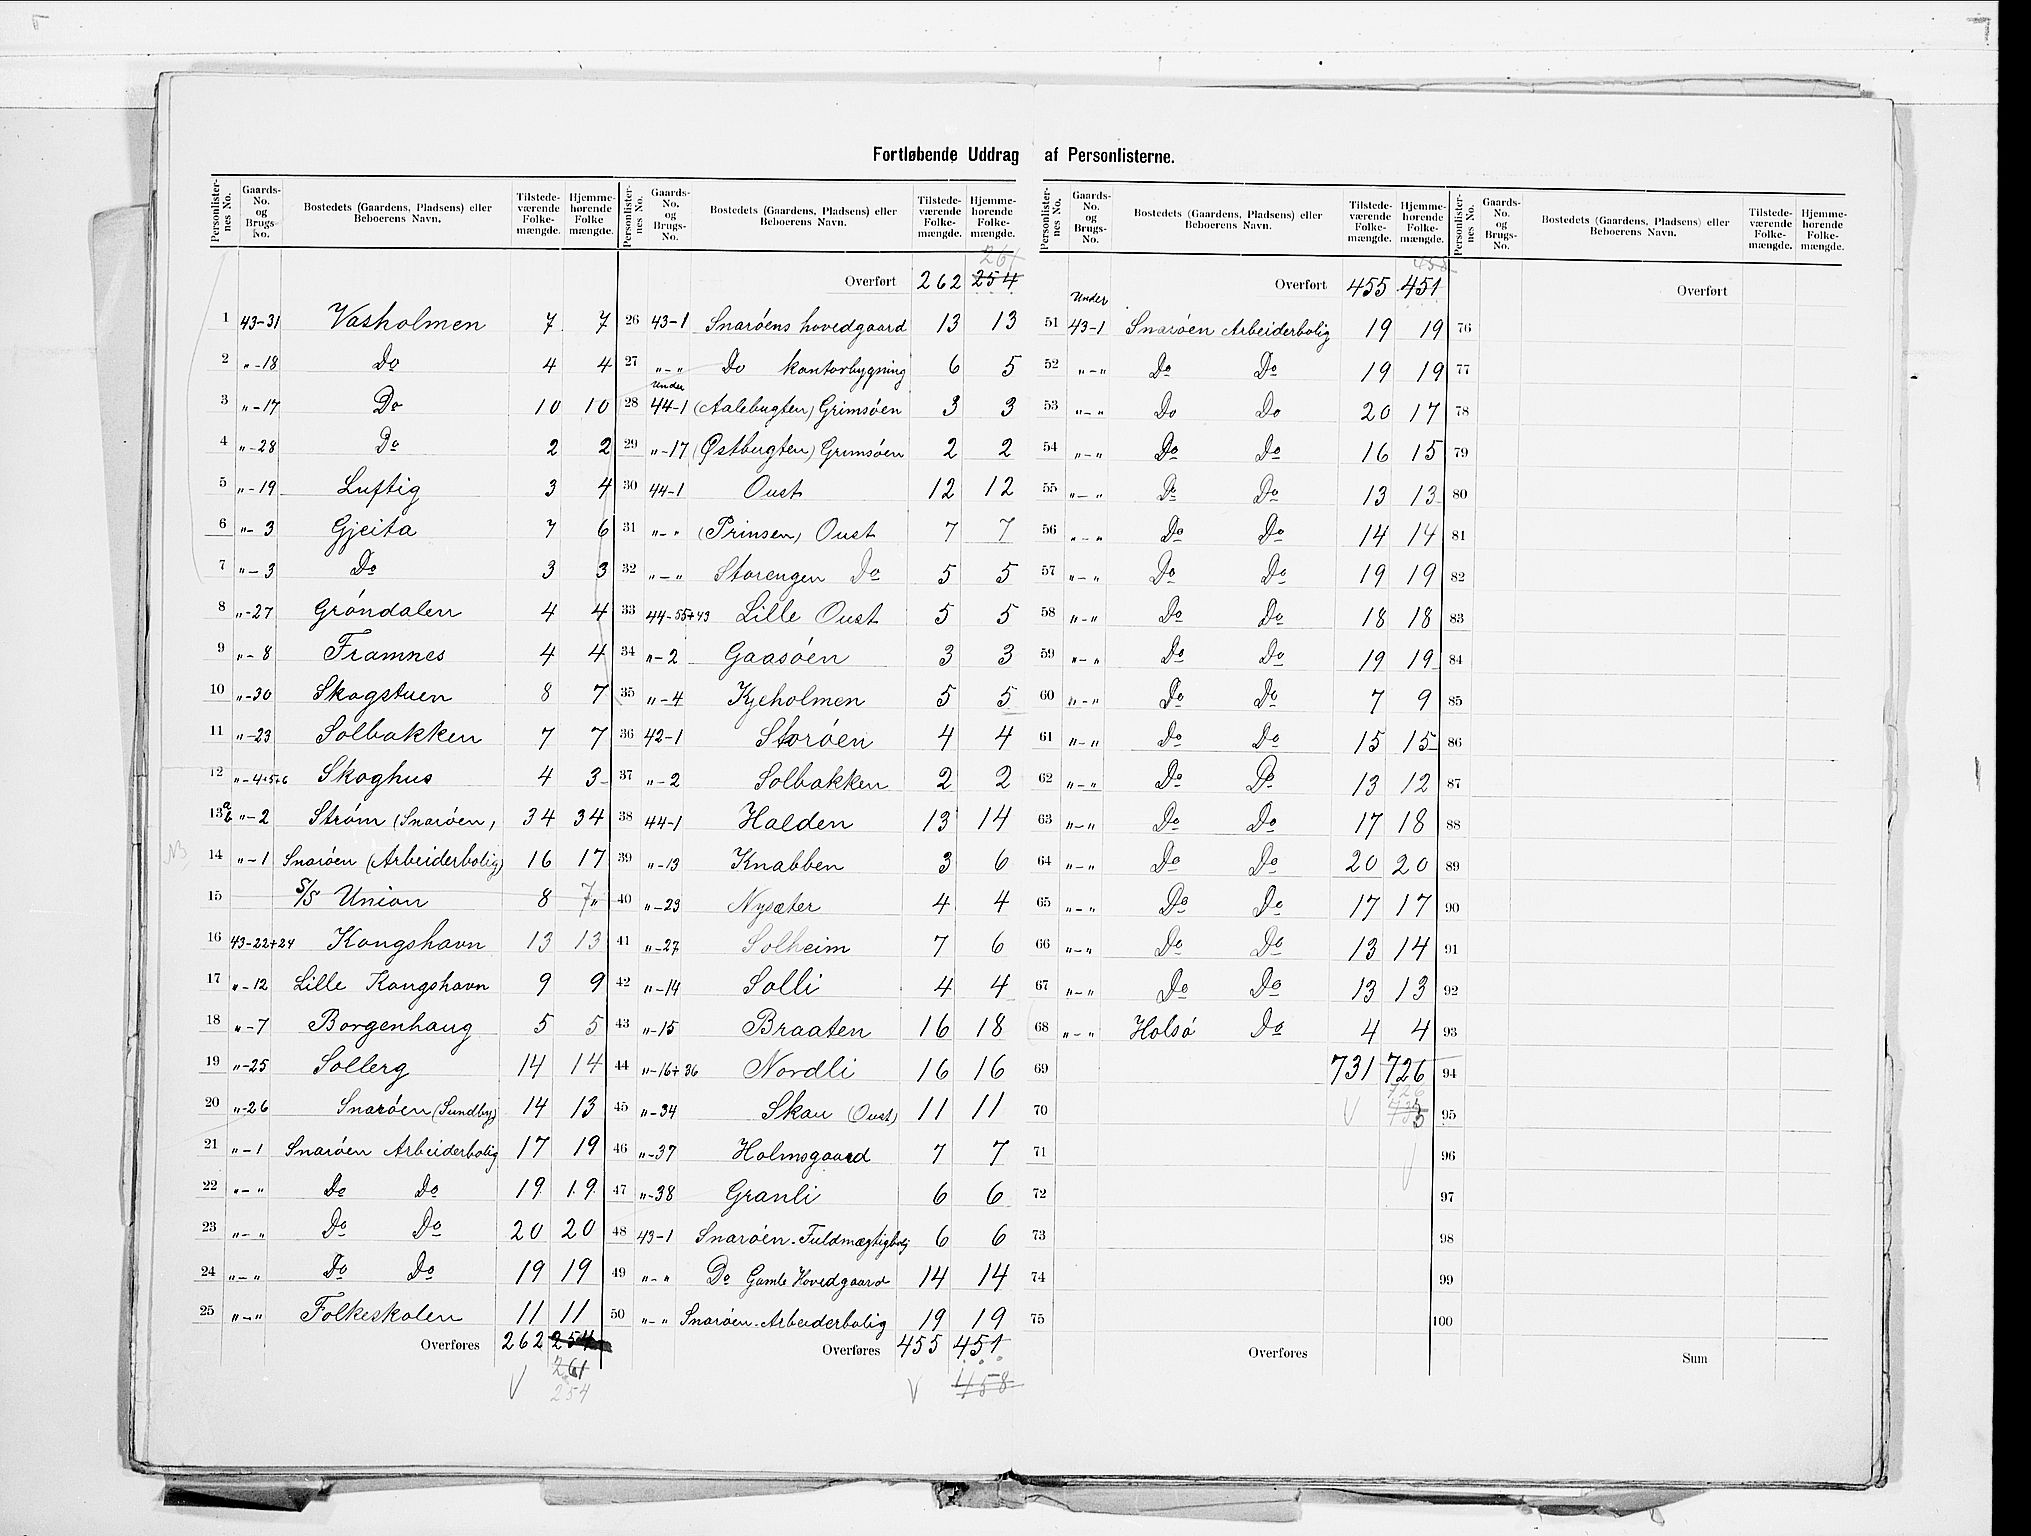 Fortløbende Uddrag af Personlisterne.
Personlister-nes No. Gaards-No. og Brugs-No. Bostedets (Gaardens, Pladsens) eller Beboerens Navn. Tilstede-værende Folke-mængde. Hjemme-hørende Folke mængde.
1 43-31 Vasholmen 7 7
2 "-18 Do 4 4
3 "-17 Do 10 10
4 "-28 Do 2 2
5 "-19 Luftig 3 4
6 "-3 Gjeita 7 6
7 "-3 Do 3 3
8 "-27 Gróndalen 4 4
9 "-8 Framnes 4 4
10 "-30 Skogstuen 8 7
11 "-23 Solbakken 7 7
12 "-4+5+6 Skoghus 4 3
13 a b "-2 Strøm (Snarøen) 34 34
14 "-1 Snarøen (Arbeiderbolig) 16 17
15 S/S Union 8 7"
16 43-22+24 Kongshavn 13 13
17 "-12 Lille Kongshavn 9 9
18 "-7 Borgenhaug 5 5
19 "-25 Solberg 14 14
20 "-26 Snarøen (Sundby) 14 13
21 "-1 Snarøen Arbeiderbolig 17 19
22 "-" Do Do 19 19
23 "-" Do Do 20 20
24 "-" Do Do 19 19
25 "-" Folkeskolen 11 11
Overføres 262 254
261
254
Personlister-nes No. Gaards-No. og Brugs-No. Bostedets (Gaardens, Pladsens) eller Beboerens Navn. Tilstede-værende Folke-mængde. Hjemme-hørende Folke-mængde.
261
Overført 262 254
26 43-1 Snarøens hovedgaard 13 13
27 "-" Do kontorbygning 6 5
Under
28 44-1 (Aalebugten) Grimsøen 3 3
29 "-17 (Østbugten) Grimsøen 2 2
30 44-1 Oust 12 12
31 "-" (Prinsen) Oust 7 7
32 "-" Storengen Do 5 5
33 44-55+43 Lille Oust 5 5
34 "-2 Gaasøen 3 3
35 "-4 Kjeholmen 5 5
36 42-1 Storøen 4 4
37 "-2 Solbakken 2 2
38 44-1 Halden 13 14
39 "-13 Knabben 3 6
40 "-29 Nysæter 4 4
41 "-27 Solheim 7 6
42 "-14 Solli 4 4
43 "-15 Braaten 16 18
44 "-16+36 Nordli 16 16
45 "-34 Skau (Oust) 11 11
46 "-37 Holmsgaard 7 7
47 "-38 Granli 6 6
48 43-1 Snarøen-Fuldmægtigbolig 6 6
49 "-" Do Gamle Hovedgaard 14 14
50 "-" Snarøen-Arbeiderbolig 19 19
Overføres 455 451
458
Personlister-nes No. Gaards-No. og Brugs-No. Bostedets (Gaardens, Pladsens) eller Beboerens Navn. Tilstede-værende Folke-mængde. Hjemme-hørende Folke-mængde.
458
Overført 455 451
Under
51 43-1 Snarøen Arbeiderbolig 19 19
52 "-" Do Do 19 19
53 "-" Do Do 20 17
54 "-" Do Do 16 15
55 "-" Do Do 13 13
56 "-" Do Do 14 14
57 "-" Do Do 19 19
58 "-" Do Do 18 18
59 "-" Do Do 19 19
60 "-" Do Do 7 9
61 "-" Do Do 15 15
62 "-" Do Do 13 12
63 "-" Do Do 17 18
64 "-" Do Do 20 20
65 "-" Do Do 17 17
66 "-" Do Do 13 14
67 "-" Do Do 13 13
68 "-" Holsø Do 4 4
69 731 726
70 726
71
72
73
74
75
Overføres
Personlister-nes No. Gaards-No. og Brugs-No. Bostedets (Gaardens, Pladsens) eller Beboerens Navn. Tilstede-værende Folke-mængde. Hjemme-hørende Folke-mængde.
Overført
76
77
78
79
80
81
82
83
84
85
86
87
88
89
90
91
92
93
94
95
96
97
98
99
100
Sum